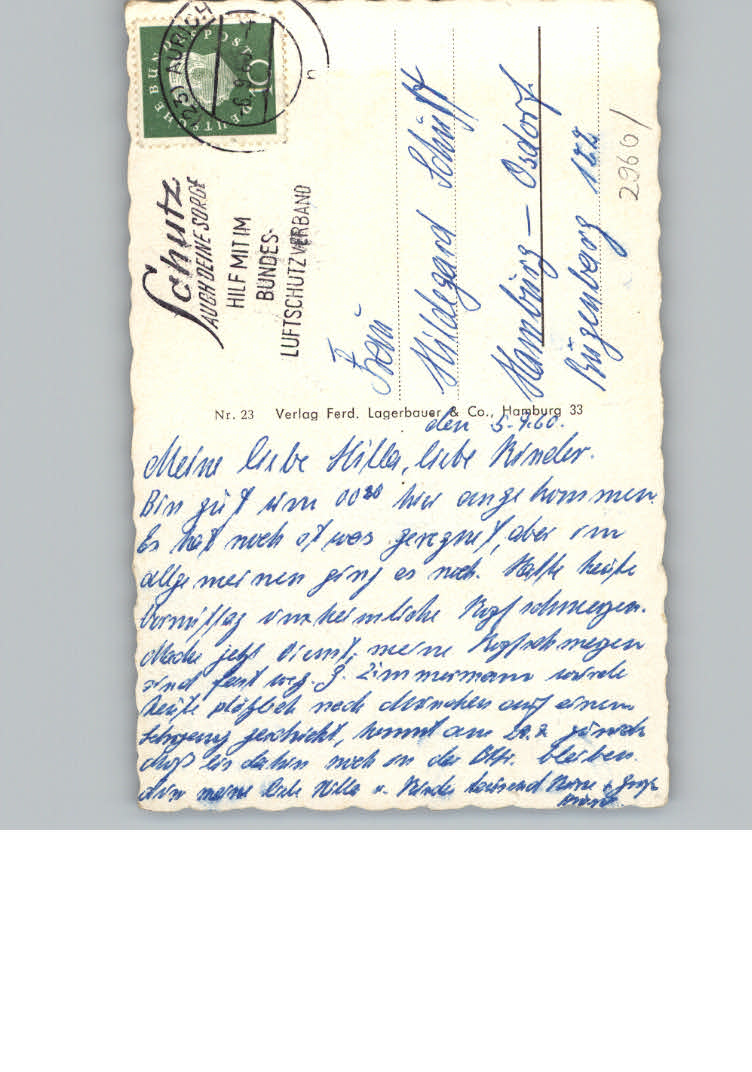 (23) AURICH
DEUTSCHE BUNDESPOST
10
Schutz
AUCH DEINE SORGE
HILF MIT IM
BUNDES-
LUFTSCHUTZVERBAND
Frau
Hildegard Schütt
Hamburg - Osdorf
Bügenbarg 122
29601
Nr. 23 Verlag Ferd. Lagerbauer & Co., Hamburg 33
den 5.9.60.
Meine liebe Hilla, liebe Kinder.
Bin gut um 00 hier angekommen.
Es hat noch etwas geregnet, aber im
allgemeinen ging es noch. Hatte heute
Vormittag unheimliche Kopfschmerzen.
Mache jetzt Dienst, meine Kopfschmerzen
sind fast weg. Zimmermann wurde
heute plötzlich nach München auf einen
Lehrgang geschickt, kommt am zurück
muß bis dahin noch an der bleiben.
Nun meine liebe Hilla u. Kinder tausend